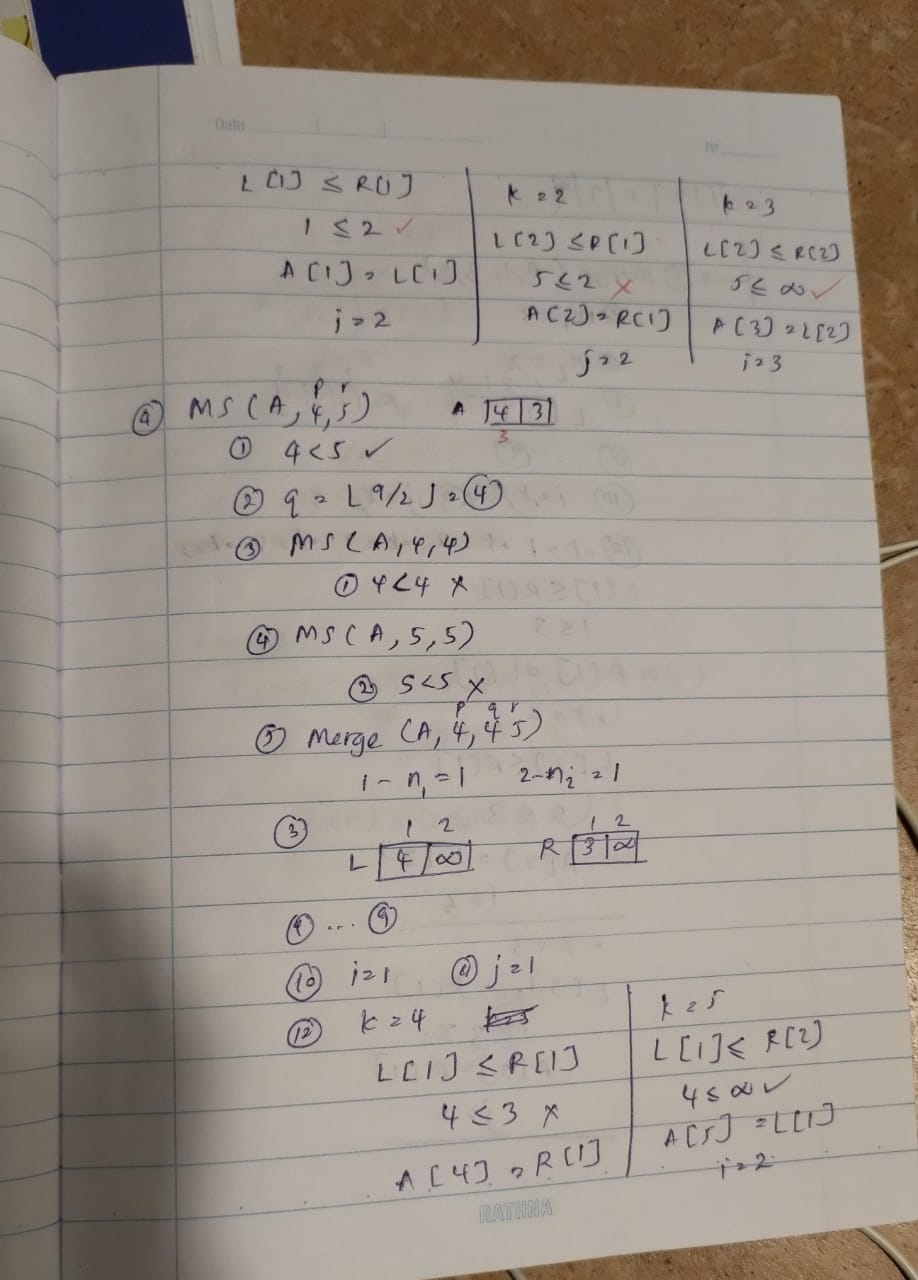 Date
L[1] ≤ R[1]
1 ≤ 2 ✓
A[1] = L[1]
i = 2
k = 2
L[2] ≤ R[1]
5 ≤ 2 ✗
A[2] = R[1]
j = 2
k = 3
L[2] ≤ R[2]
5 ≤ ∞ ✓
A[3] = L[2]
i = 3
p r
④ MS (A, 4, 5) A 4 3
3
① 4 < 5 ✓
② q = ⌊9/2⌋ = ④
③ MS (A, 4, 4)
① 4 < 4 ✗
④ MS (A, 5, 5)
② 5 < 5 ✗
p q r
⑤ Merge (A, 4, 4 5)
1 - n₁ = 1 2 - n₂ = 1
③ 1 2 1 2
L 4 ∞ R 3 ∞
④ ... ⑨
⑩ i = 1 ⑪ j = 1
⑫ k = 4
L[1] ≤ R[1]
4 ≤ 3 ✗
A[4] = R[1]
k = 5
L[1] ≤ R[2]
4 ≤ ∞ ✓
A[5] = L[1]
i = 2
RATHNA